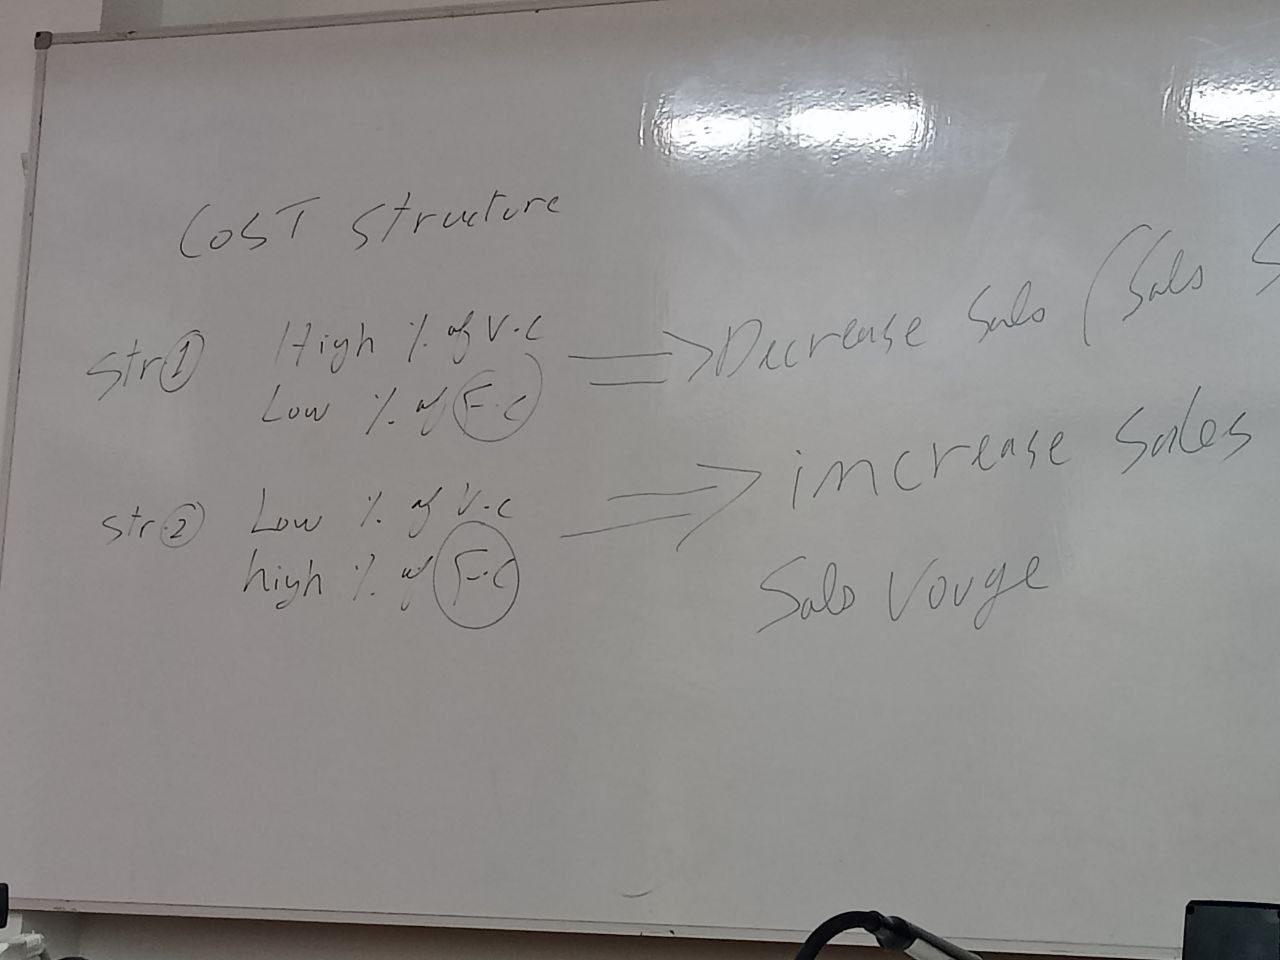 Cost structure
Str 1 High % of V.C
Low % of F.C
=> Decrease Sales (Sales S
Str 2 Low % of V.C
high % of F.C
=> increase Sales
Sales